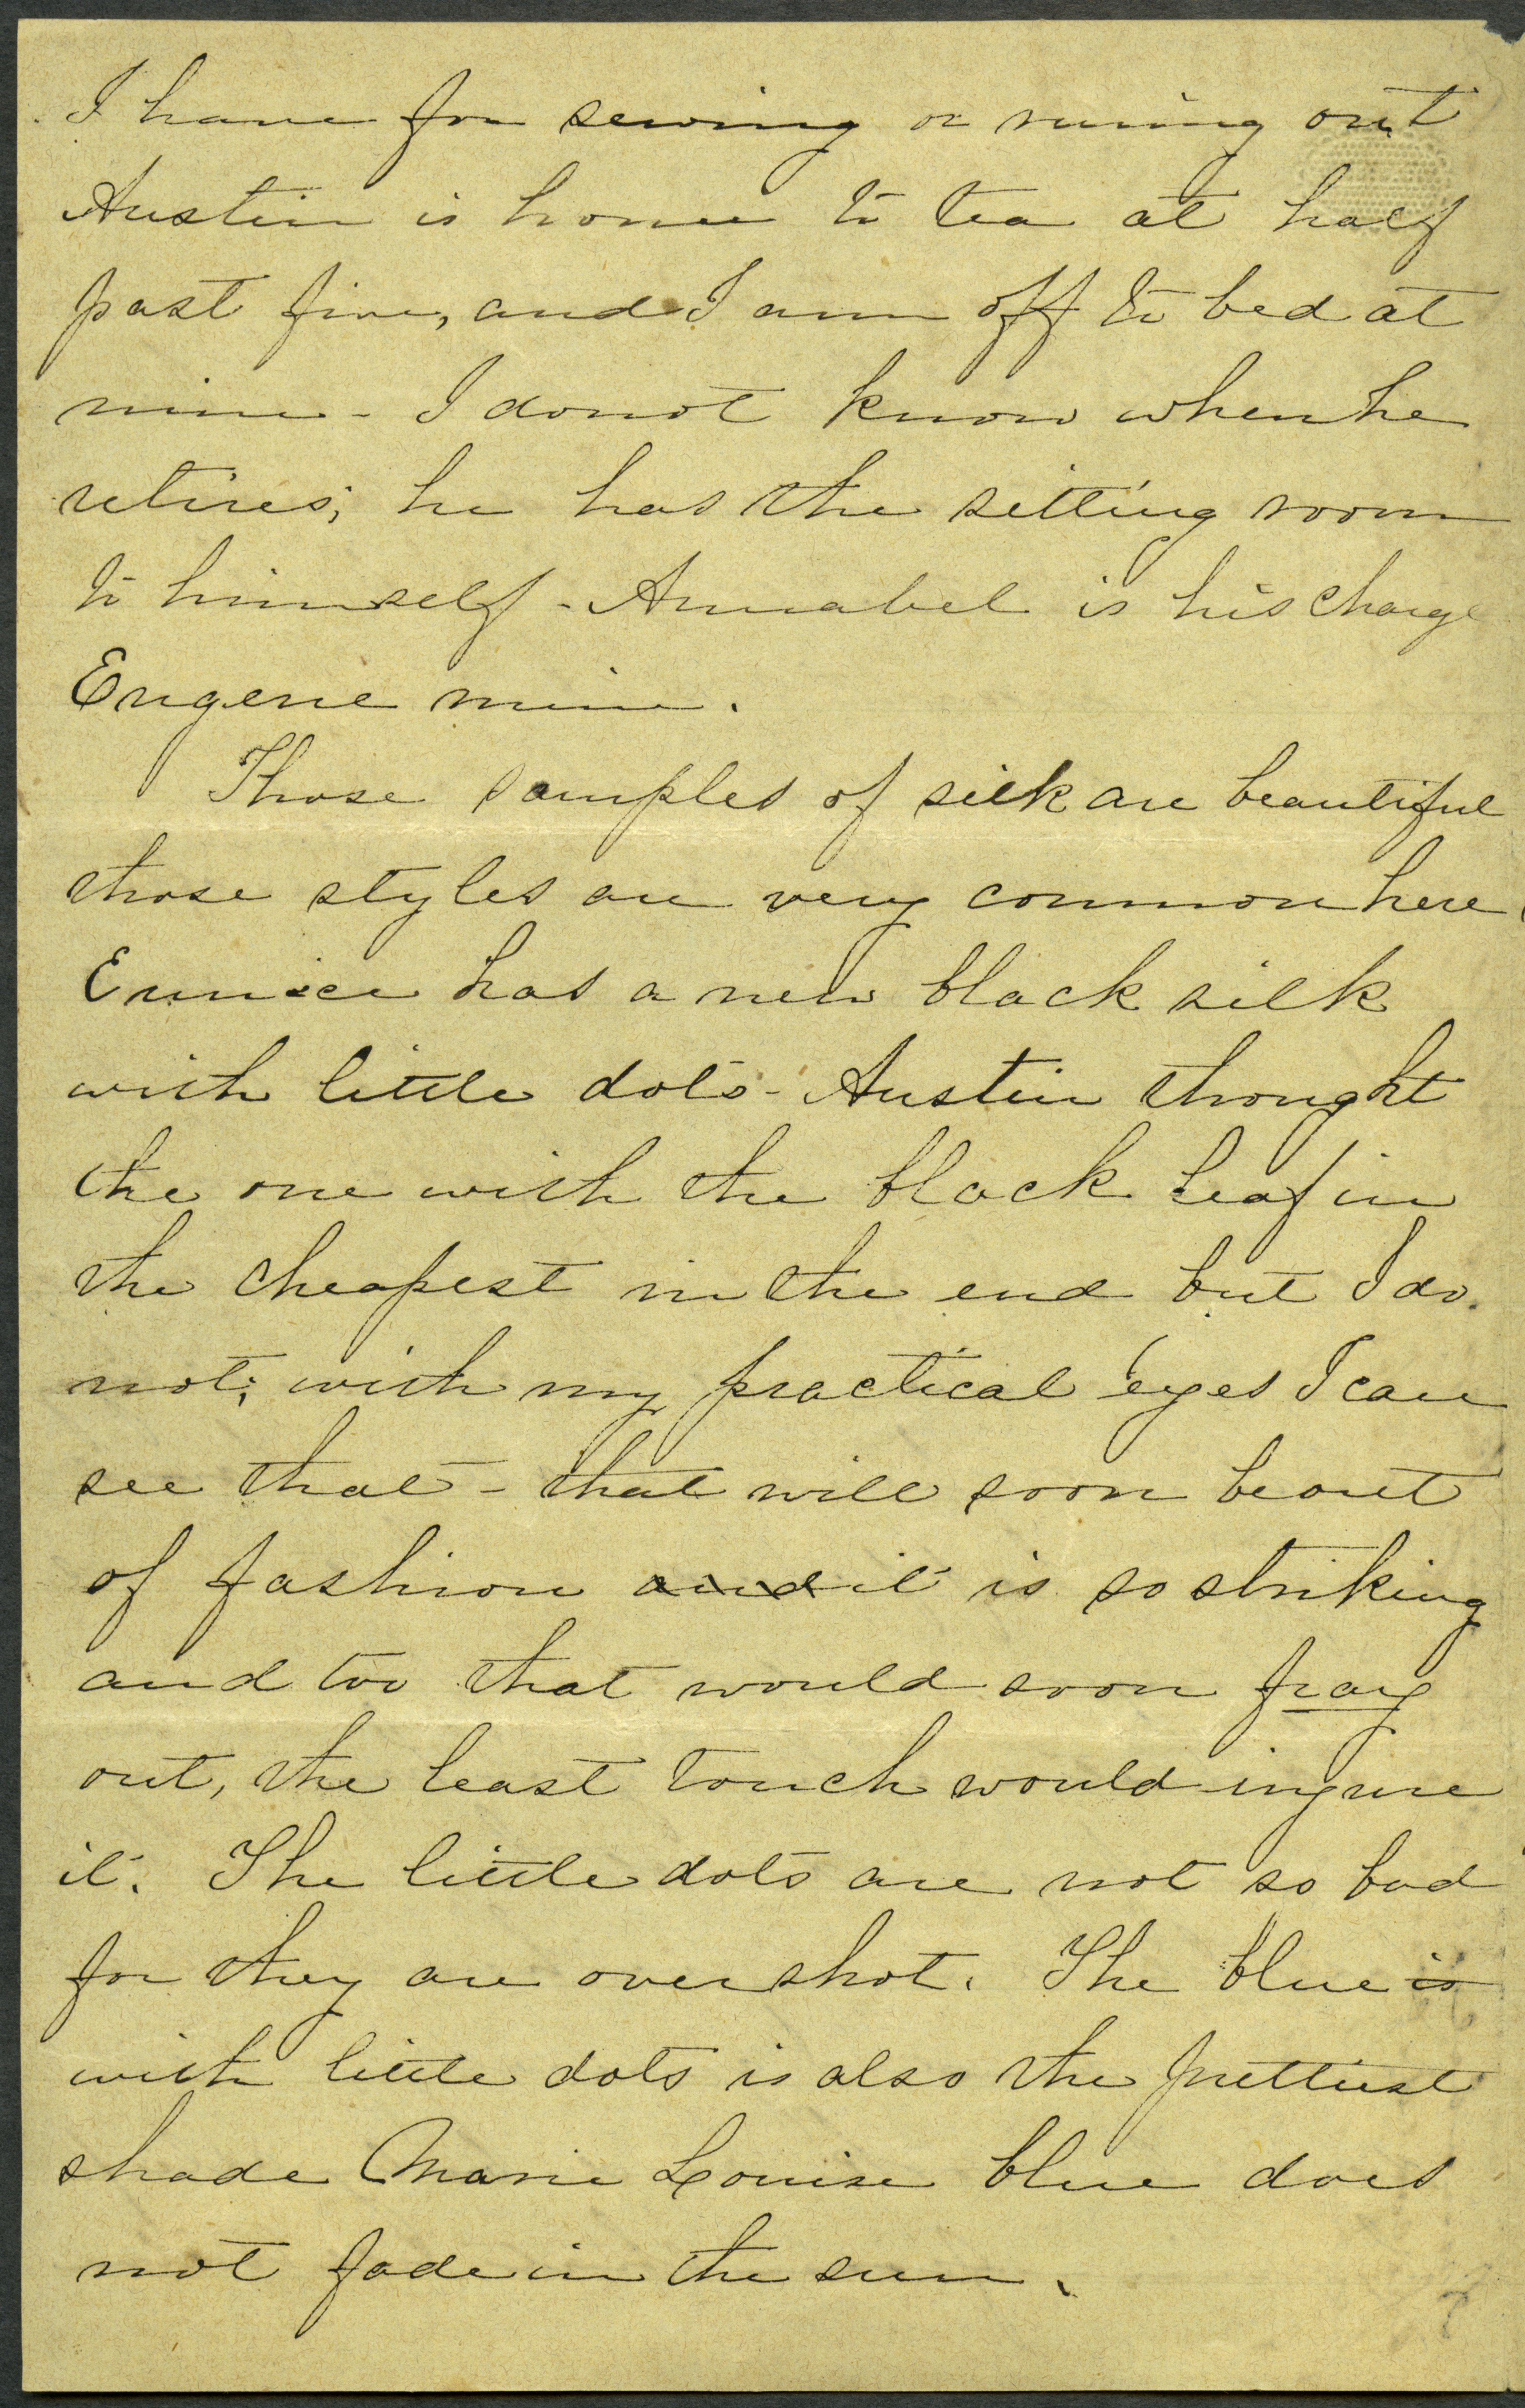 I have for sewing or runing out
Austin is home to tea at half
past five, and I am off to bed at
nine - I donot know when he
retires; he has the sitting room
to himself - Annabel is his charge
Eugene mine.
Those samples of silk are beautiful
those styles are very common here
Eunice has a new black silk
with little dots - Austin thought
the one with the black leaf in
the cheapest in the end but I do
not; with my practical eyes I can
see that - that will soon be out
of fashion and it is so striking
and too that would soon fray
out, the least touch would injure
it. The little dots are not so bad
for they are overshot. The blue is
with little dots is also the prettiest
shade Marie Louise blue does
not fade in the sun.